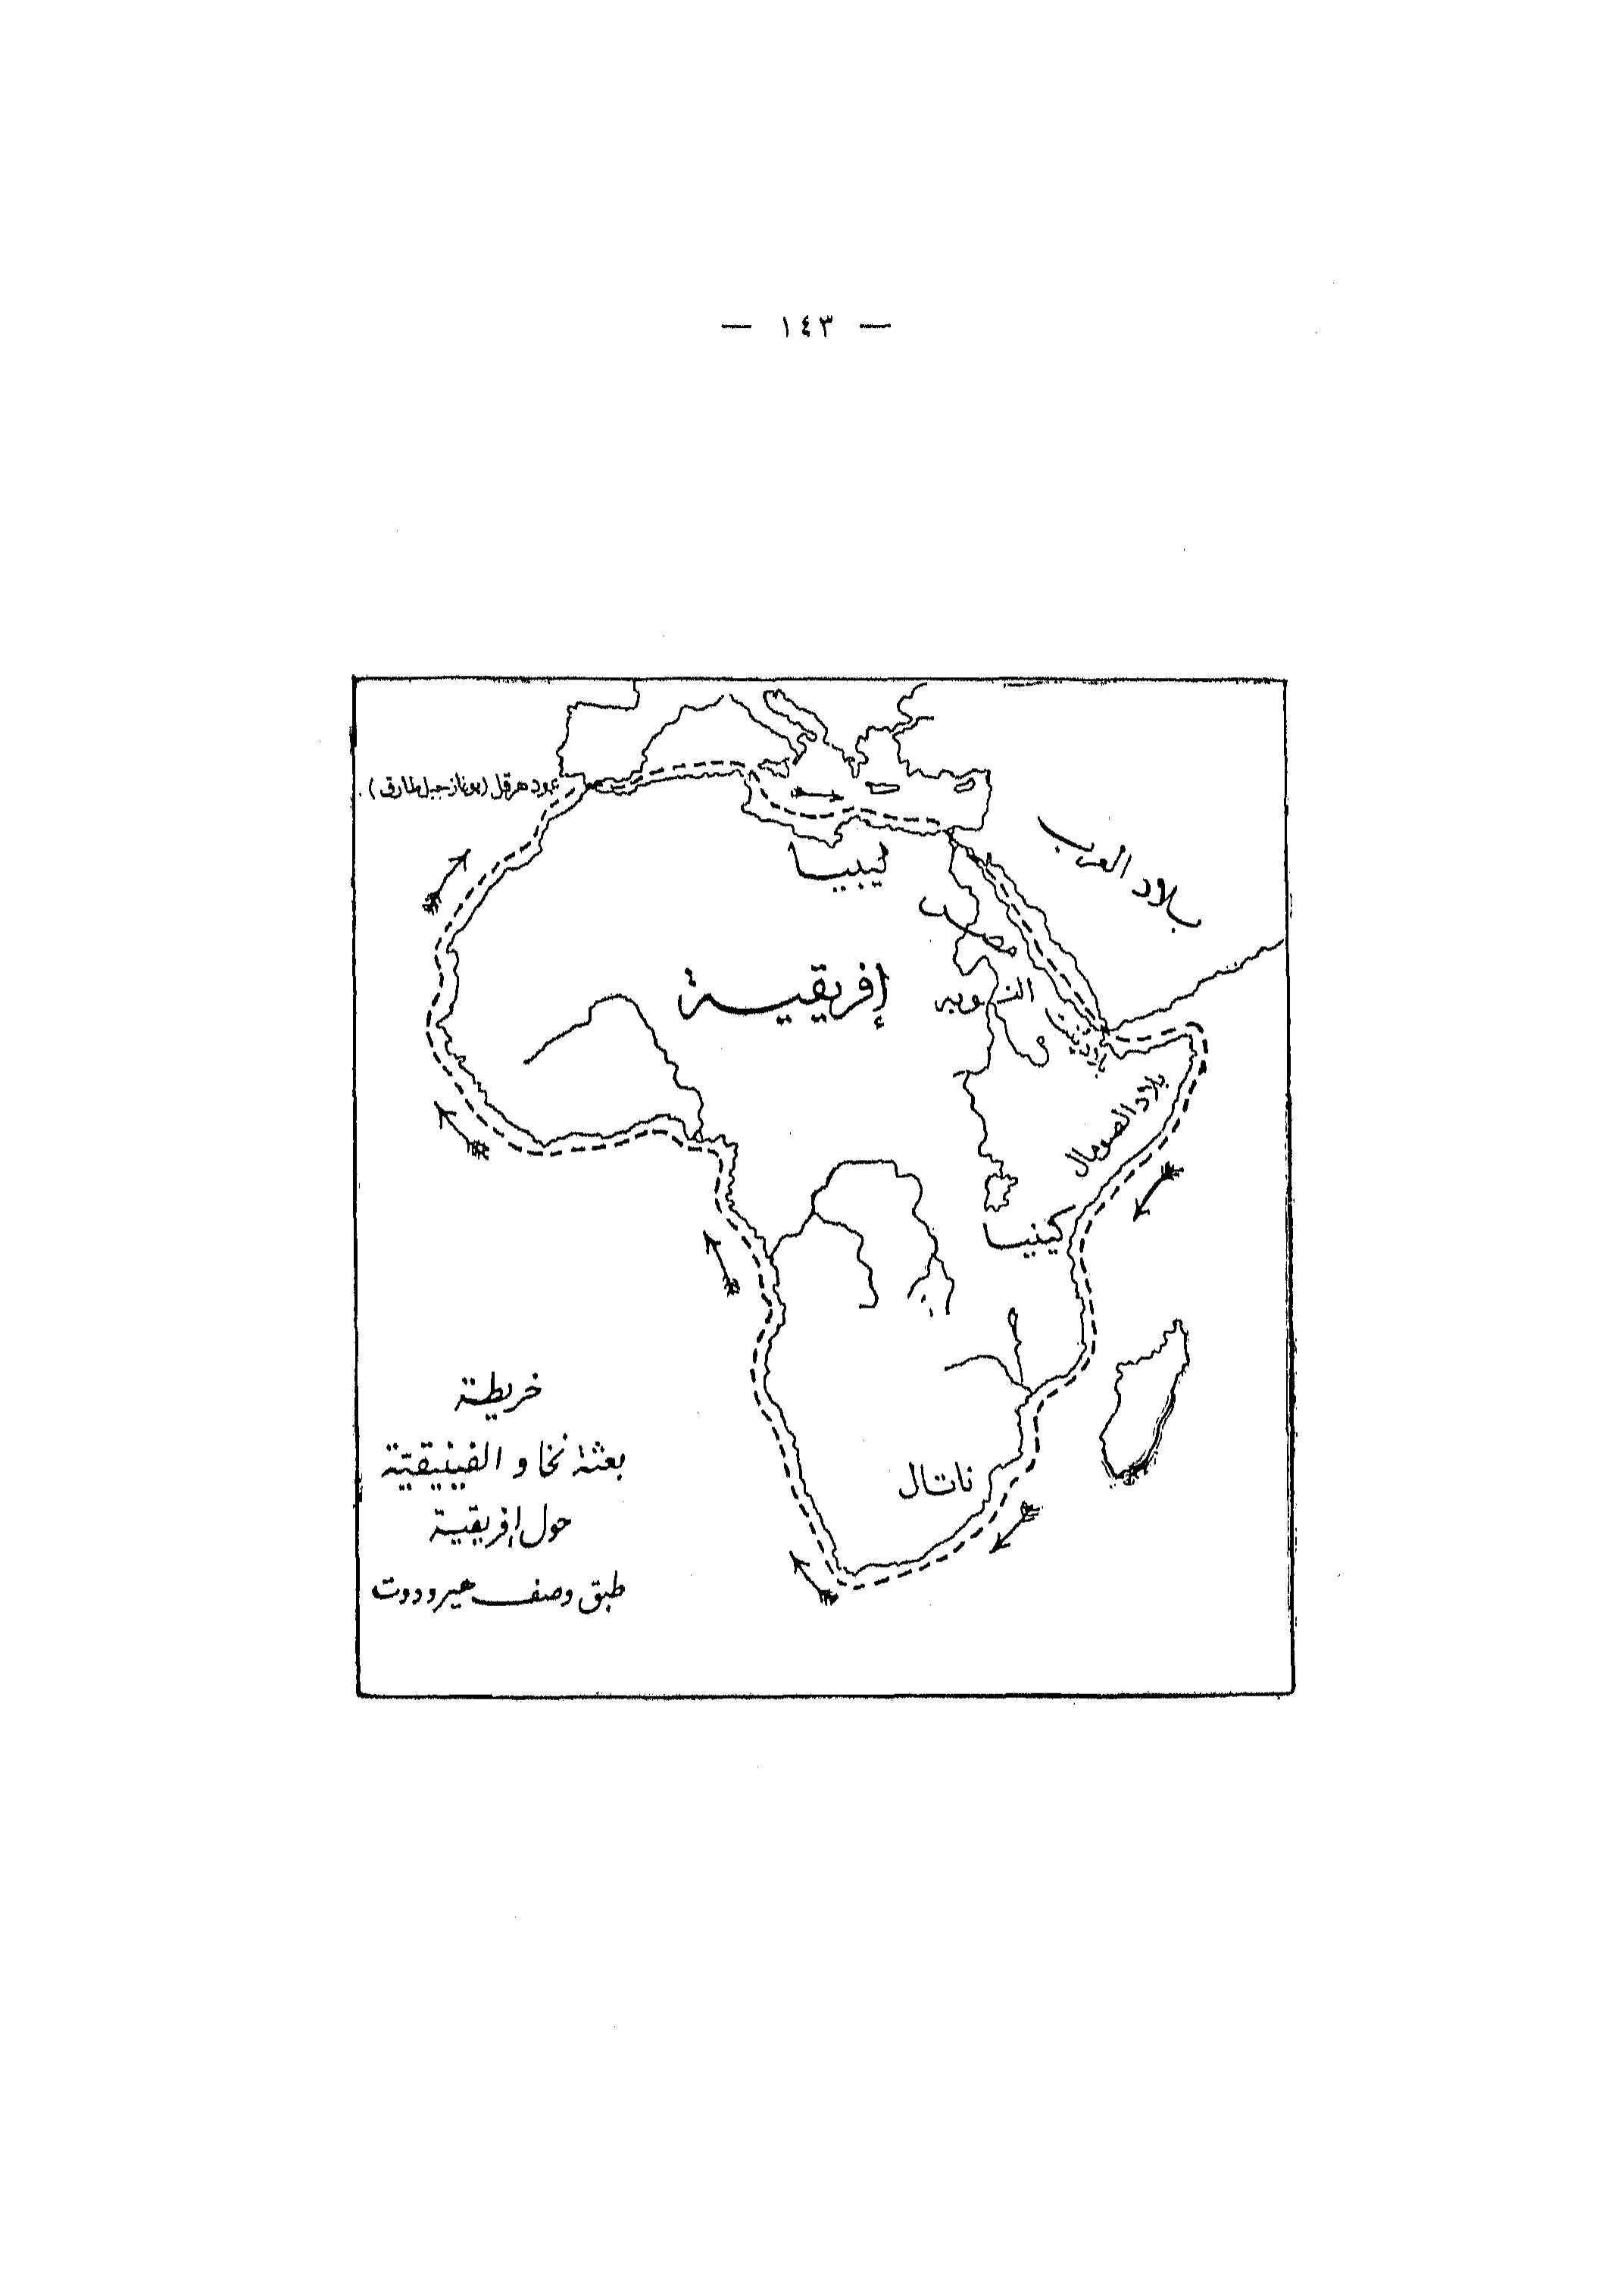 — ١٤٣ —
عمود هرقل (بوغاز جبل طارق)
ليبيا
بلاد العرب
مصر
إفريقية
النوبه
بلاد الصومال
كينيا
ناتال
خريطة
بعثة نخاو الفينيقيّة
حول إفريقية
طبق وصف هيرودوت